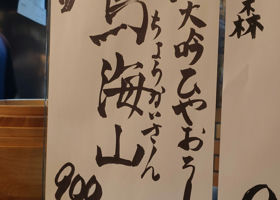 森
大吟ひやおろし
鳥海山
ちょうかいさん
900